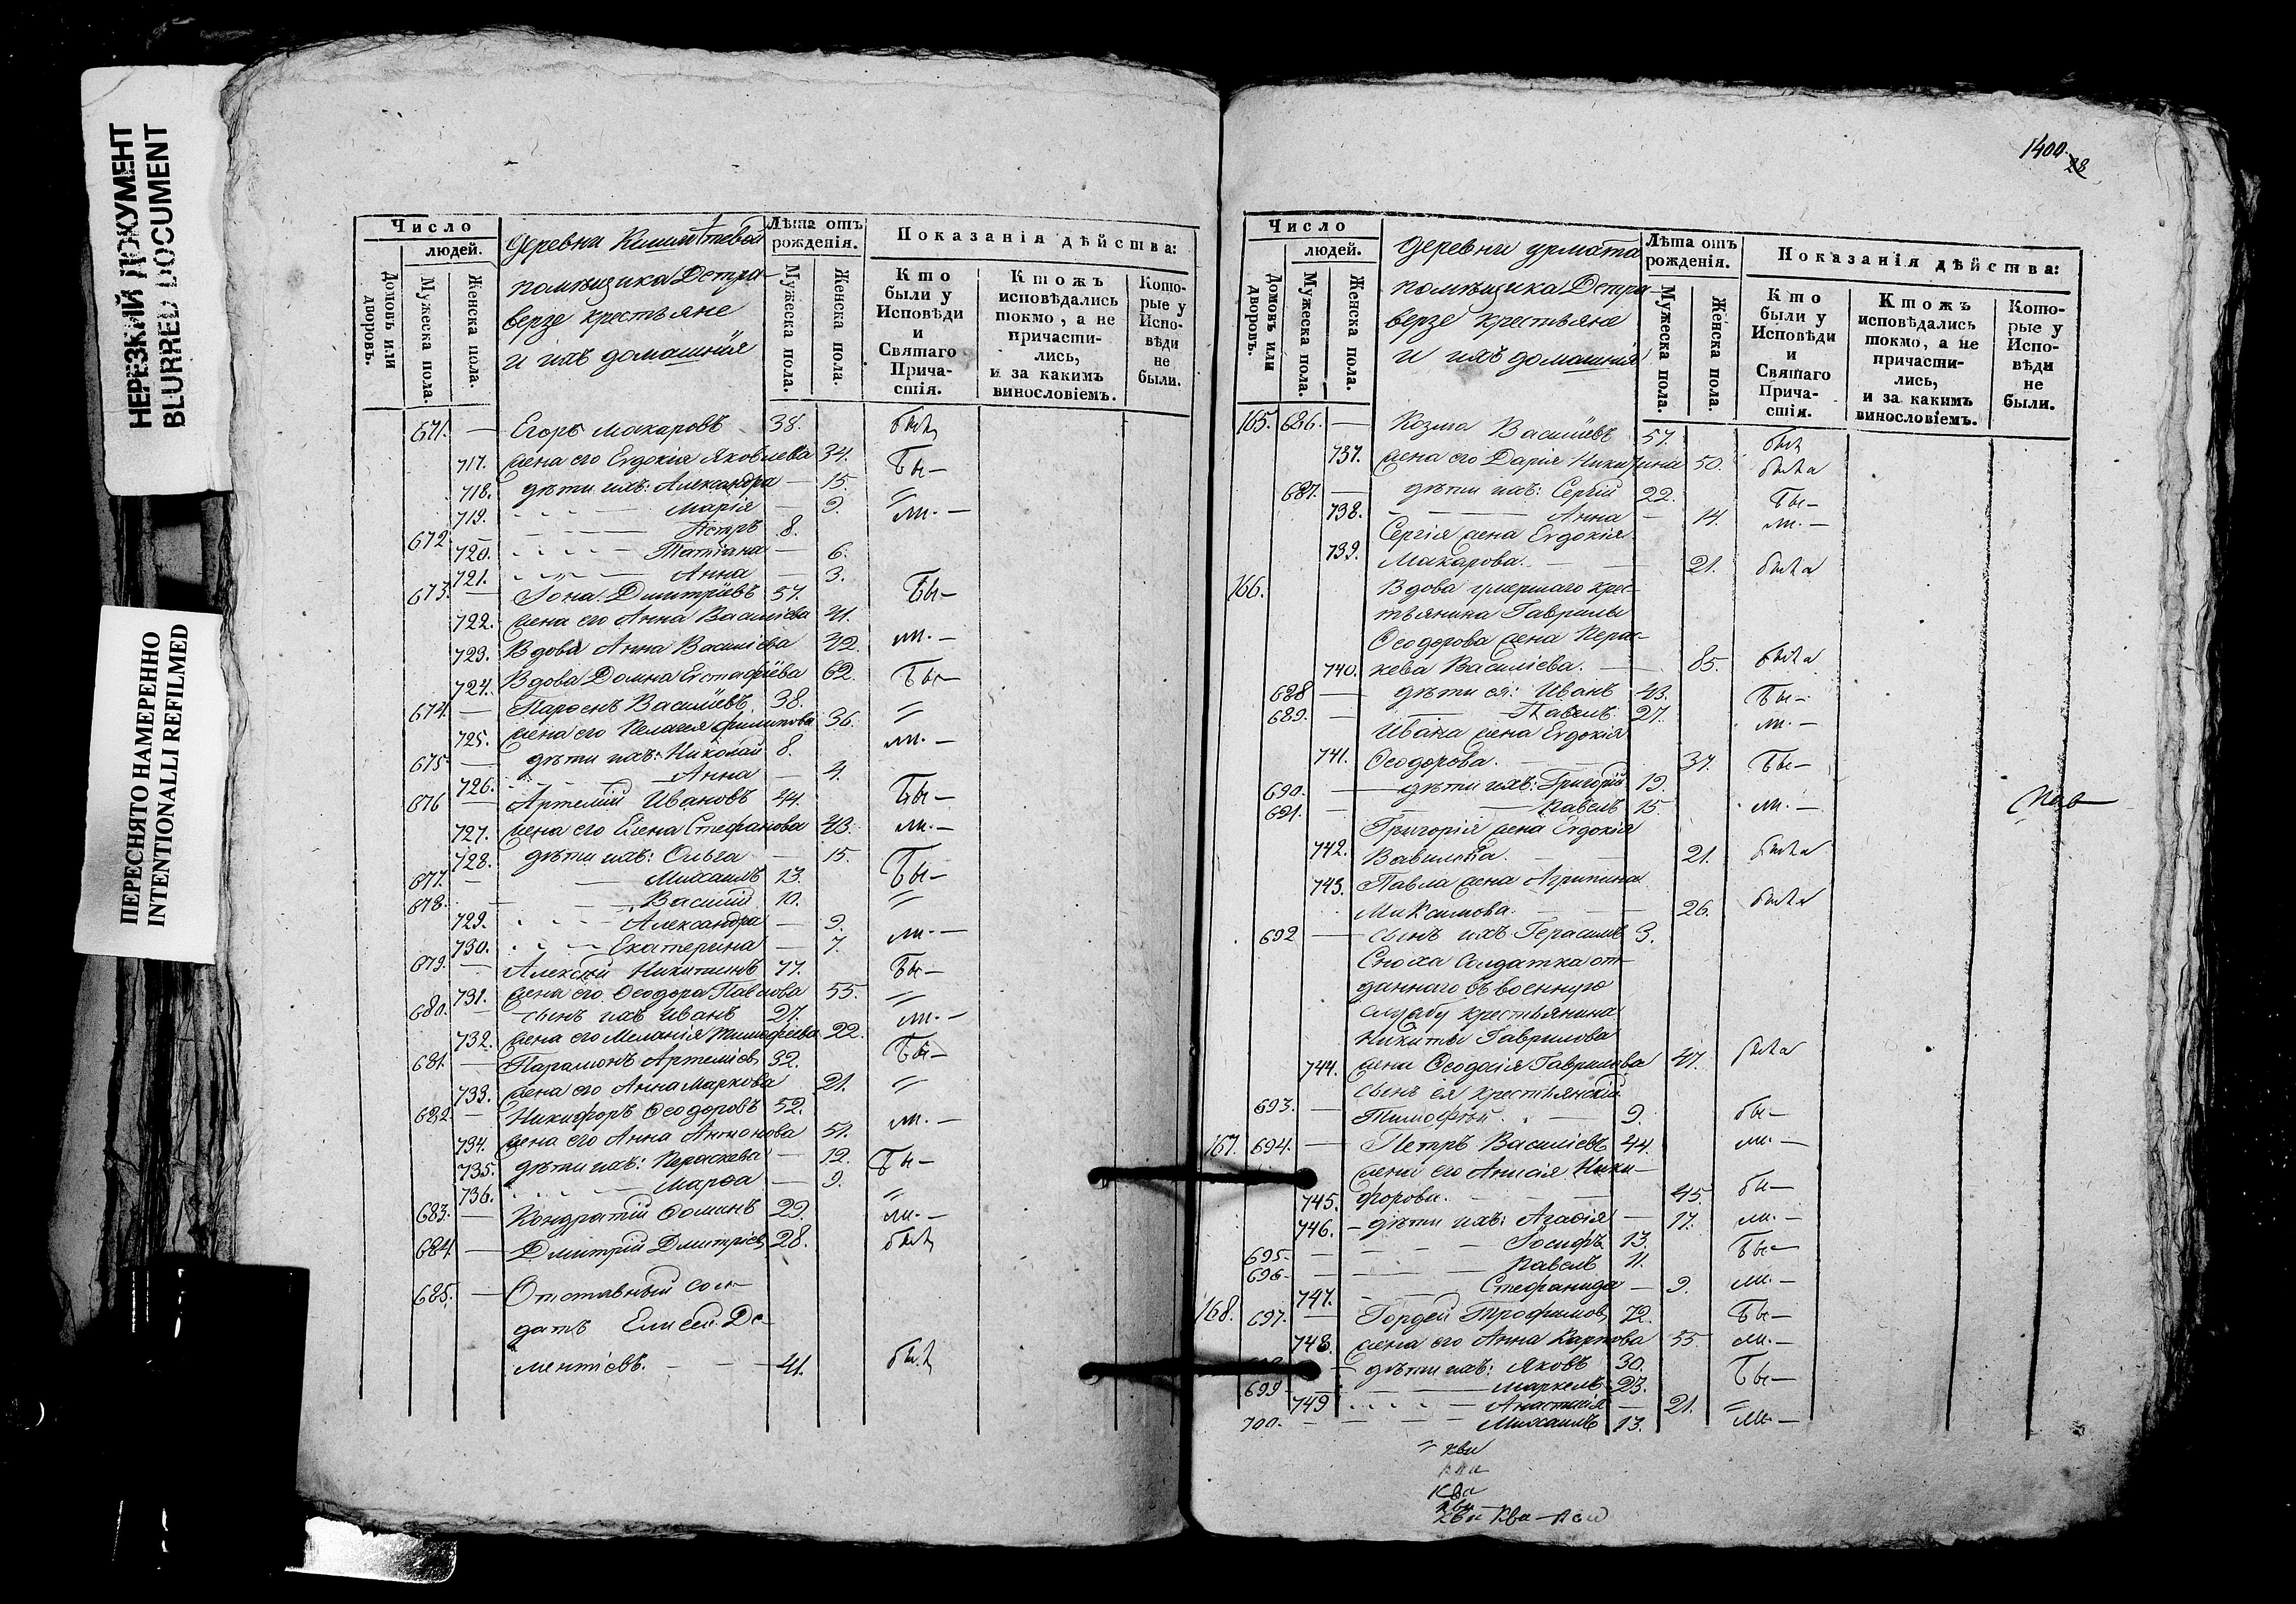 НЕРЕЗКИЙ ДОКУМЕНТ
BLURRED DOCUMENT
ПЕРЕСНЯТО НАМЕРЕННО
INTENTIONALLI REFILMED
Число
людей.
Домовъ или дворовъ.
Мужеска пола.
Женска пола.
деревни
помѣщика Детра-
верзе крестьяне
и ихъ домашнія
Лѣта отъ рожденія.
Мужеска пола.
Женска пола.
Показанія дѣйства:
Кто были у Исповѣди и Святаго Прича-стія.
Ктожъ исповѣдались токмо, а не причасти-лись, и за какимъ винословіемъ.
Кото-рые у Испо-вѣди не были.
671. — Егоръ Макаровъ 38. былъ
717. жена его Евдокія Яковлева 34. бы—
718. дѣти ихъ: Александра — 15. "
719. Марія — 9. ли. —
672 — Петръ 8.
720. Татіана — 6.
721. Анна — 3.
673. — Іона Дмитріевъ 57. бы—
722. жена его Анна Василіева 41.
723. Вдова Анна Василіева 42. ли. —
724. Вдова Домна Евстафіева 62. бы—
674. — Парѳенъ Василіевъ 38. "
725. жена его Пелагея Филипова 36. ли. —
675 — дѣти ихъ: Николай 8.
726. Анна — 4.
676 — Артемій Ивановъ 44. бы—
727. жена его Елена Стефанова 43. ли. —
728. дѣти ихъ: Ольга — 15. бы—
677. — Михаилъ 13. "
678. Василій 10.
729. Александра — 9. ли. —
730. Екатерина — 7.
679. — Алексѣй Никитинъ 77. бы—
731. жена его Ѳеодора Павлова 55. "
680. — сынъ ихъ Иванъ 27. ли. —
732. жена его Меланія Тимофеева 22. бы—
681. — Парамонъ Артеміевъ 32.
733. жена его Анна Маркова 21. "
682 — Никифоръ Ѳеодоровъ 52. ли. —
734. жена его Анна Антонова 51.
735. дѣти ихъ: Параскева — 12. бы—
736. Марѳа — 9. "
683. — Кондратій Ѳоминъ 29. ли. —
684. — Дмитрій Дмитріевъ 28. былъ
685. — Отставный сол-
датъ Елисей Де-
ментіевъ. — — — 41. былъ
1400
28
Число
людей.
Домовъ или дворовъ.
Мужеска пола.
Женска пола.
деревни урмата
помѣщика Детра-
верзе крестьяне
и ихъ домашнія
Лѣта отъ рожденія.
Мужеска пола.
Женска пола.
Показанія дѣйства:
Кто были у Исповѣди и Святаго Прича-стія.
Ктожъ исповѣдались токмо, а не причасти-лись, и за какимъ винословіемъ.
Кото-рые у Испо-вѣди не были.
165. 686. — Козма Василіевъ 57. былъ
737. жена его Дарія Никитина 50. была
687. — дѣти ихъ: Сергій 22. бы—
738. Анна — 14. ли. —
Сергія жена Евдокія
739. Макарова. — — 21. была
166. Вдова умершаго крес-
тьянина Гаврилы
Ѳеодорова жена Парас-
740. кева Василіева. — — 85. была
688 — дѣти ея: Иванъ 43. бы—
689. — Павелъ 27. ли. —
Ивана жена Евдокія
741. Ѳеодорова. — — 37. бы—
690. — дѣти ихъ: Григорій 19.
691. — Павелъ 15. ли. —
Григорія жена Евдокія
742. Вавилова. — — 21. была
743. Павла жена Агрипина
Максимова. — — 26. была
692 — сынъ ихъ Герасимъ 3.
Сноха Солдатка от-
даннаго въ военную
службу крестьянина
Никиты Гаврилова
744. жена Ѳеодосія Гаврилова 47. была
сынъ ея крестьянскій
693. — Тимофей. — 9. бы—
167. 694. — Петръ Василіевъ 44. ли. —
жена его Анисія Ники-
745. форова. — — 45. бы—
746. — дѣти ихъ: Агафія — 17. ли. —
695 — Іосифъ 13. бы—
696 — Павелъ 11.
747. Стефанида — 9. ли. —
168. 697. — Гордей Трофимовъ 72. бы—
748. жена его Анна Карпова 55. ли. —
дѣти ихъ: Яковъ 30. бы—
699 — Маркелъ 23.
749 Анастасія — 21. "
700. — Михаилъ 13. ли. —